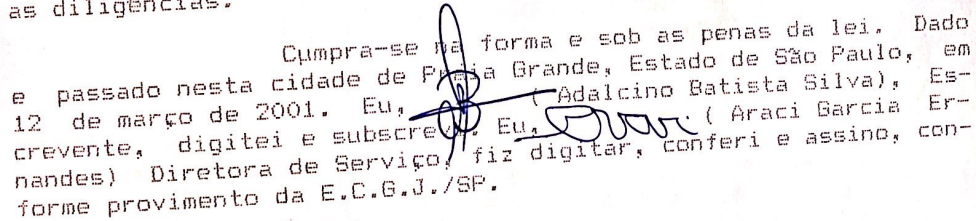 as diligências.
Cumpra-se na forma e sob as penas da lei. Dado
e passado nesta cidade de Praia Grande, Estado de São Paulo, em
12 de março de 2001. Eu, (Adalcino Batista Silva), Es-
crevente, digitei e subscrevi. Eu, ( Araci Garcia Er-
nandes) Diretora de Serviço, fiz digitar, conferi e assino, con-
forme provimento da E.C.G.J./SP.